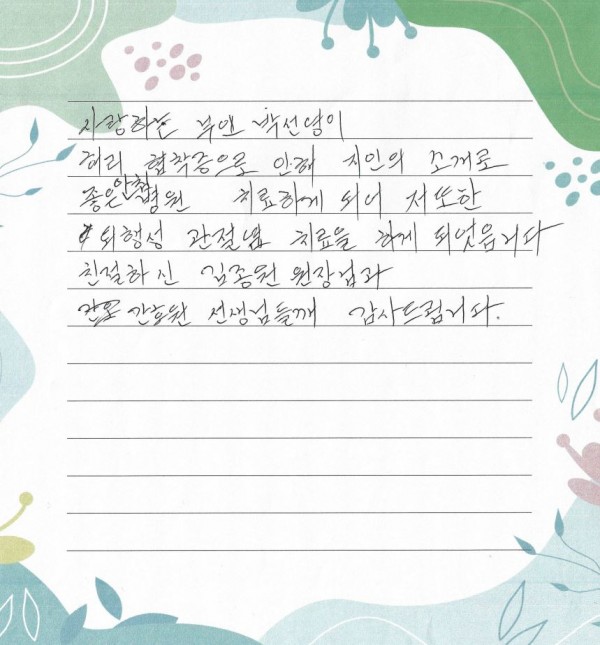 사랑하는 부인 박선영이
허리 협착증으로 인해 지인의 소개로
좋은 병원 치료하게 되어 저또한
퇴행성 관절염 치료을 하게 되었읍니다
친절하신 김종원 원장님과
간호원 선생님들깨 감사드립니다.